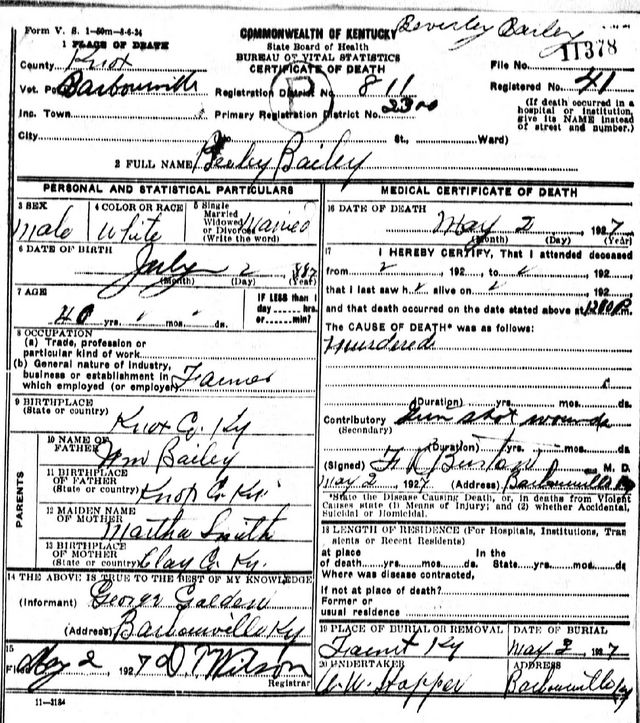 Form V. S. 1-50m-8-6-24
COMMONWEALTH OF KENTUCKY
Beverley Bailey
1 PLACE OF DEATH
State Board of Health
BUREAU OF VITAL STATISTICS
CERTIFICATE OF DEATH
11378
County Knox
File No.
Vot. Barbourville
Registration District No. 811
Registered No. 41
Ins. Town
Primary Registration District No. 2300
(If death occurred in a hospital or institution, give its NAME instead of street and number.)
City
No. St., Ward)
2 FULL NAME Bailey
PERSONAL AND STATISTICAL PARTICULARS
3 SEX Male
4 COLOR OR RACE White
5 Single Married Widowed or Divorced (Write the word) Married
6 DATE OF BIRTH
July 2 1887
(Month) (Day) (Year)
7 AGE
40 yrs. mos. ds.
IF LESS than 1 day ...... hrs. or ...... min?
8 OCCUPATION
(a) Trade, profession or particular kind of work
(b) General nature of industry, business or establishment in which employed (or employer) Farmer
9 BIRTHPLACE
(State or country) Knox Co. Ky
PARENTS
10 NAME OF FATHER Wm Bailey
11 BIRTHPLACE OF FATHER
(State or country) Knox Co Ky
12 MAIDEN NAME OF MOTHER Martha Smith
13 BIRTHPLACE OF MOTHER
(State or country) Clay Co. Ky.
14 THE ABOVE IS TRUE TO THE BEST OF MY KNOWLEDGE
(Informant) George Golden
(Address) Barbourville Ky
15
Filed May 2 1927 D T Wilson
Registrar
11-3184
MEDICAL CERTIFICATE OF DEATH
16 DATE OF DEATH
May 2 1927
(Month) (Day) (Year)
17 I HEREBY CERTIFY, That I attended deceased
from , 192 , to , 192
that I last saw h alive on , 192
and that death occurred on the date stated above at m.
The CAUSE OF DEATH* was as follows:
Murdered
(Duration) yrs. mos. ds.
Contributory Gun shot wounds
(Secondary)
(Duration) yrs. mos. ds.
(Signed) M. D.
May 2 1927 (Address) Barbourville
*State the Disease Causing Death, or, in deaths from Violent Causes state (1) Means of Injury; and (2) whether Accidental, Suicidal or Homicidal.
18 LENGTH OF RESIDENCE (For Hospitals, Institutions, Transients or Recent Residents)
at place of death yrs. mos. ds. In the State yrs. mos. ds.
Where was disease contracted,
If not at place of death?
Former or usual residence
19 PLACE OF BURIAL OR REMOVAL Ky
DATE OF BURIAL May 3 1927
20 UNDERTAKER Hopper
ADDRESS Barbourville Ky